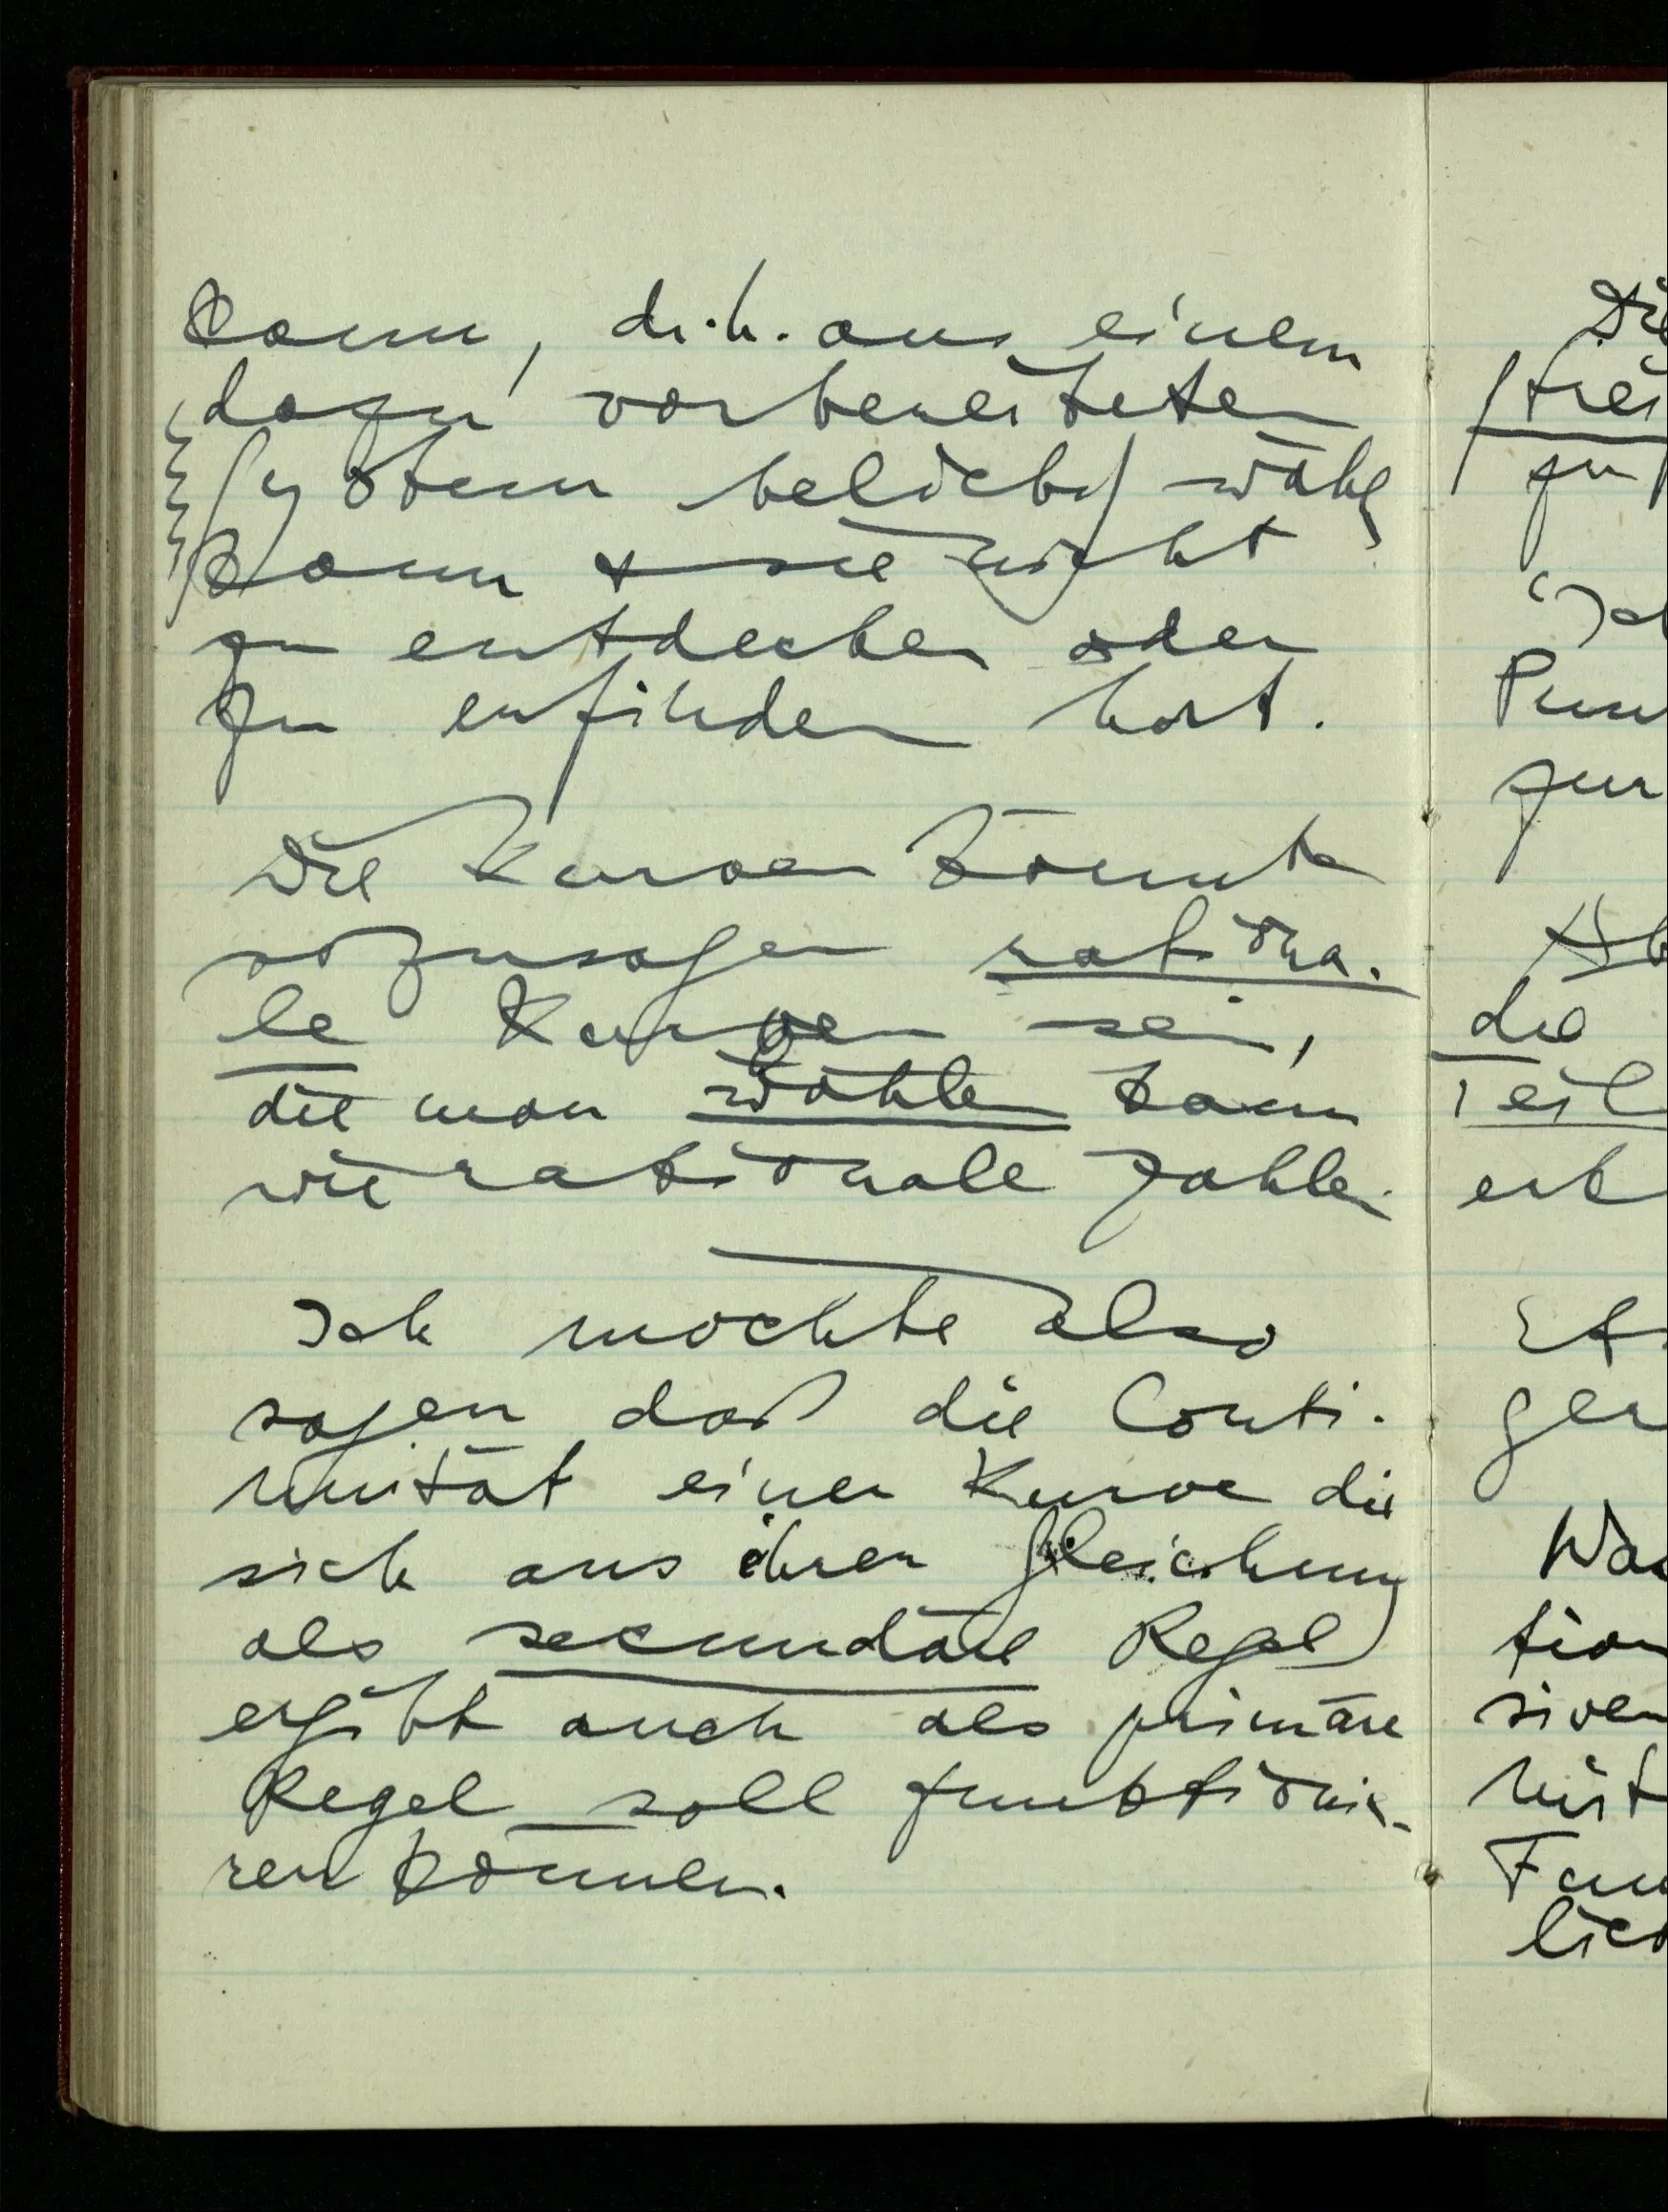 kann, d.h. aus einem
dazu vorbereiteten
System beliebig wähl
kann & sie nicht
zu entdecken oder
zu erfinden hat.
Die Kurven könnte
sozusagen rationa-
le Kurven sein,
die man wählen kann
wie rationale Zahlen
Ich möchte also
sagen daß die Conti-
nuität einer Kurve die
sich aus ihrer Gleichung
als secundäre Regel
ergibt auch als primäre
Regel soll funktionie-
ren können.
Die
frei
zu
die
Teil